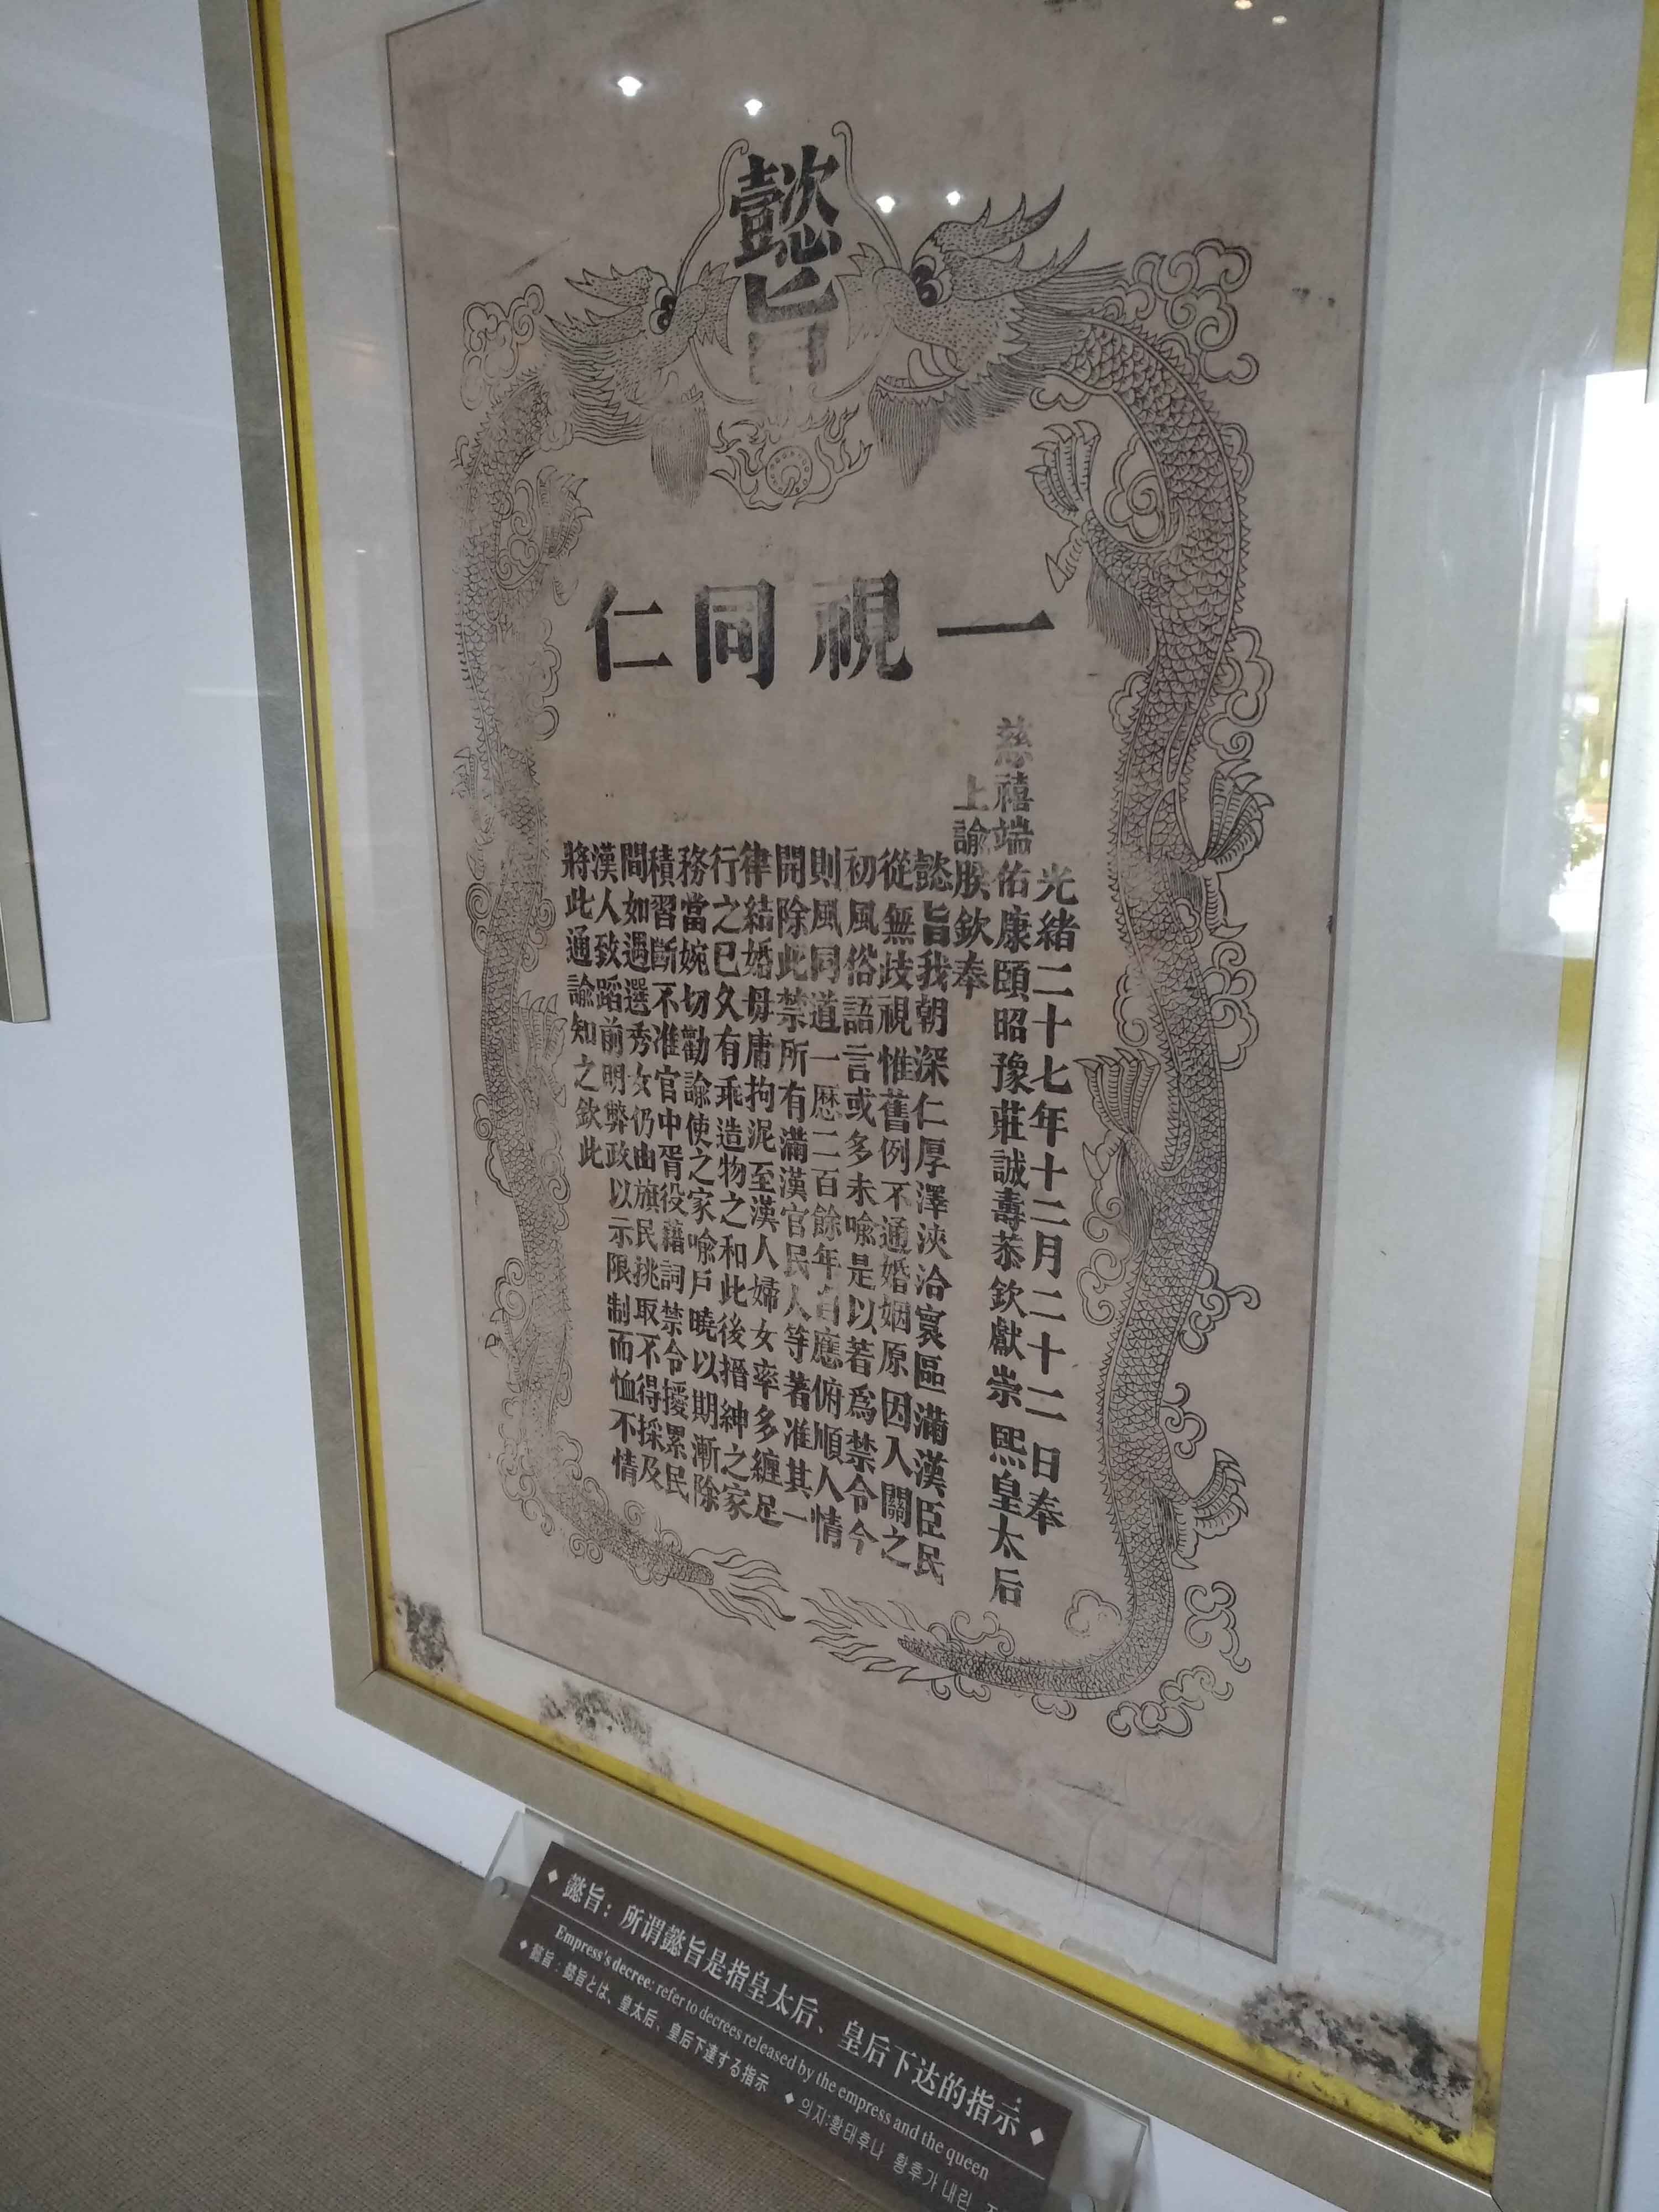 懿旨
一視同仁
光緒二十七年十二月二十二日奉
慈禧端佑康頤昭豫莊誠壽恭欽獻崇熙皇太后
上諭朕欽奉
懿旨我朝深仁厚澤浹洽寰區滿漢臣民
從無歧視惟舊例不通婚姻原因入關之
初風俗語言或多未喻是以著爲禁令今
則風同道一歷二百餘年自應俯順人情
開除此禁所有滿漢官民人等著准其一
律結婚毋庸拘泥至漢人婦女率多纏足
行之已久有乖造物之和此後搢紳之家
務當婉切勸諭使之家喻戶曉以期漸除
積習斷不准官中胥役藉詞禁令擾累民
間如遇選秀女仍由旗民挑取不得採及
漢人致蹈前明弊政以示限制而恤不情
將此通諭知之欽此
◆ 懿旨：所谓懿旨是指皇太后、皇后下达的指示 ◆
Empress's decree: refer to decrees released by the empress and the queen
◆ 懿旨：懿旨とは、皇太后、皇后下達する指示 ◆ 의지:황태후나 황후가 내린